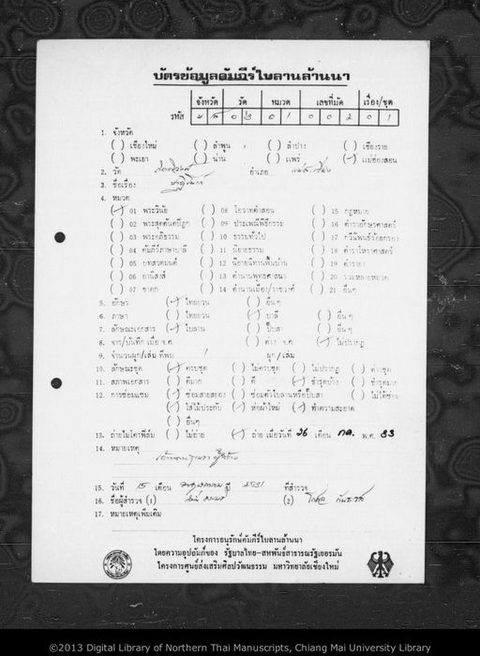 บัตรข้อมูลคัมภีร์ใบลานล้านนา
จังหวัด วัด หมวด เลขที่มัด เรื่อง/ชุด
รหัส 0 3 0 1 0 0 2 0 1
1. จังหวัด
( ) เชียงใหม่ ( ) ลำพูน ( ) ลำปาง ( ) เชียงราย
( ) พะเยา ( ) น่าน ( ) แพร่ (✓) แม่ฮ่องสอน
2. วัด อำเภอ
3. ชื่อเรื่อง
4. หมวด
(✓) 01 พระวินัย ( ) 08 โอวาทคำสอน ( ) 15 กฎหมาย
( ) 02 พระสุตตันตปิฎก ( ) 09 ประเพณีพิธีกรรม ( ) 16 ตำราโหราศาสตร์
( ) 03 พระอภิธรรม ( ) 10 ธรรมทั่วไป ( ) 17
( ) 04 คัมภีร์ภาษาบาลี ( ) 11 นิยายธรรม ( ) 18
( ) 05 บทสวดมนต์ ( ) 12 นิยายนิทานพื้นบ้าน ( ) 19 ตำรายา
( ) 06 อานิสงส์ ( ) 13 ตำนานพุทธศาสนา ( ) 20 รวมหลายหมวด
( ) 07 ชาดก ( ) 14 ตำนานเมือง/ราชวงศ์ ( ) 21 อื่นๆ
5. อักษร (✓) ไทยยวน ( ) อื่นๆ
6. ภาษา ( ) ไทยยวน (✓) บาลี ( ) อื่นๆ
7. ลักษณะเอกสาร (✓) ใบลาน ( ) ปั๊บสา ( ) อื่นๆ
8. จาร/บันทึก เมื่อ จ.ศ. ( ) จ.ศ. (✓) ไม่ปรากฏ
9. จำนวนผูก/เล่ม ที่พบ 1 ผูก/เล่ม
10. ลักษณะชุด (✓) ครบชุด ( ) ไม่ครบชุด ( ) ไม่ปรากฏ ( )
11. สภาพเอกสาร ( ) ดีมาก ( ) ดี (✓) ชำรุดบ้าง ( ) ชำรุดมาก
12. การซ่อมแซม (✓) ซ่อมสายสยอง ( ) ซ่อมตัวใบลานหรือปั๊บสา ( ) ไม่ได้ซ่อม
(✓) ใส่ไม้ประกับ (✓) ห่อผ้าใหม่ (✓) ทำความสะอาด
( ) อื่นๆ
13. ถ่ายไมโครฟิล์ม ( ) ไม่ถ่าย (✓) ถ่าย เมื่อวันที่ 26 เดือน กค. พ.ศ. 33
14. หมายเหตุ
15. วันที่ 15 เดือน พฤษภาคม ปี 2531 ที่สำรวจ
16. ชื่อผู้สำรวจ (1) (2)
17. หมายเหตุเพิ่มเติม
โครงการอนุรักษ์คัมภีร์ใบลานล้านนา
โดยความอุปถัมภ์ของ รัฐบาลไทย-สหพันธ์สาธารณรัฐเยอรมัน
โครงการศูนย์ส่งเสริมศิลปวัฒนธรรม มหาวิทยาลัยเชียงใหม่
©2013 Digital Library of Northern Thai Manuscripts, Chiang Mai University Library